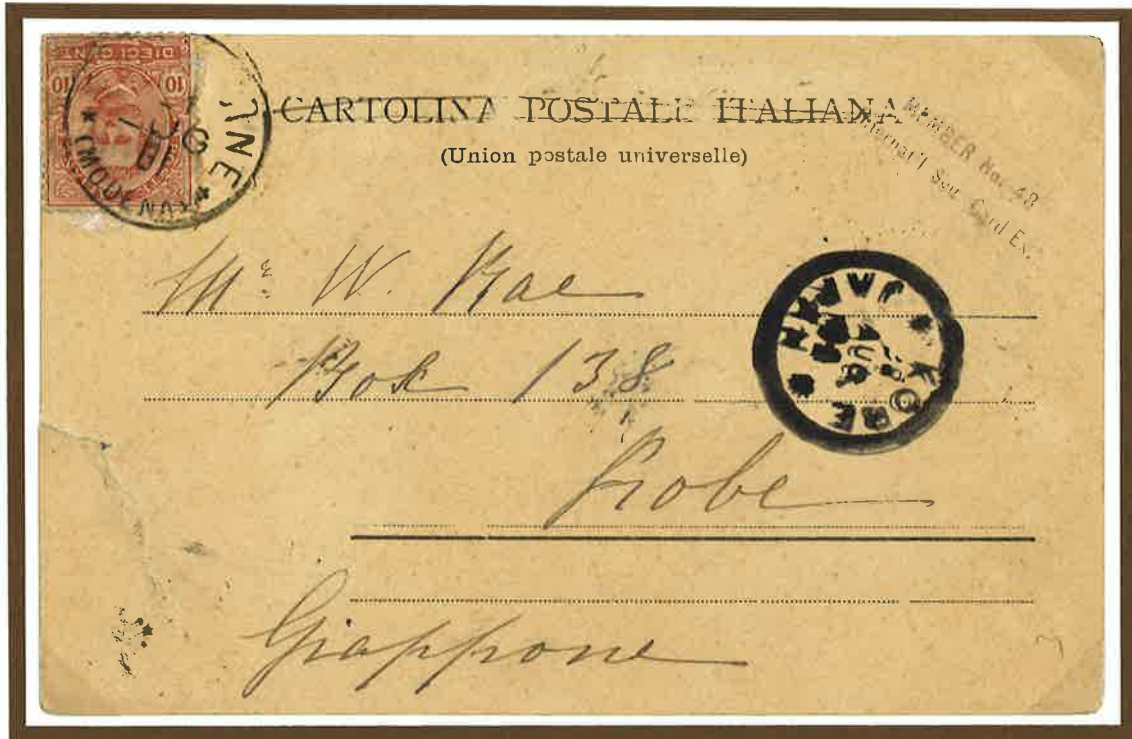 DIECI CENT
10 10
INE
(MODENA)
CARTOLINA POSTALE ITALIANA
(Union postale universelle)
MEMBER No. 48
Internat'l Sou. Card Ex.
Mr. W. Rae
Box 138
Kobe
Giappone
KOBE
JAPAN
AUG